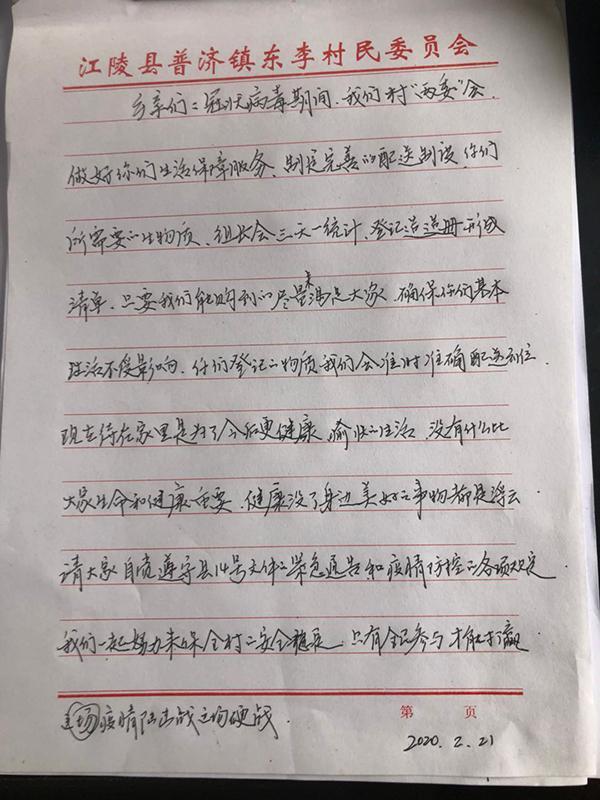 江陵县普济镇东李村民委员会
乡亲们：冠状病毒期间，我们村"两委"会
做好你们生活保障服务，制定完善的配送制设，你们
所需要的生物质、组长会三天一统计，登记造册形成
清单，只要我们能购到的尽量来满足大家，确保你们基本
生活不受影响，你们登记的物质我们会准时准确配送到位
现在待在家里是为了今后更健康、愉快的生活，没有什么比
大家生命和健康重要，健康没了身边美好的事物都是浮云
请大家自觉遵守县14号文件的紧急通告和疫情防控的各项规定
我们一起努力来保全村的安全稳定，只有全民参与才能打赢
这场疫情阻击战之场硬战．
第 页
2020.2.21